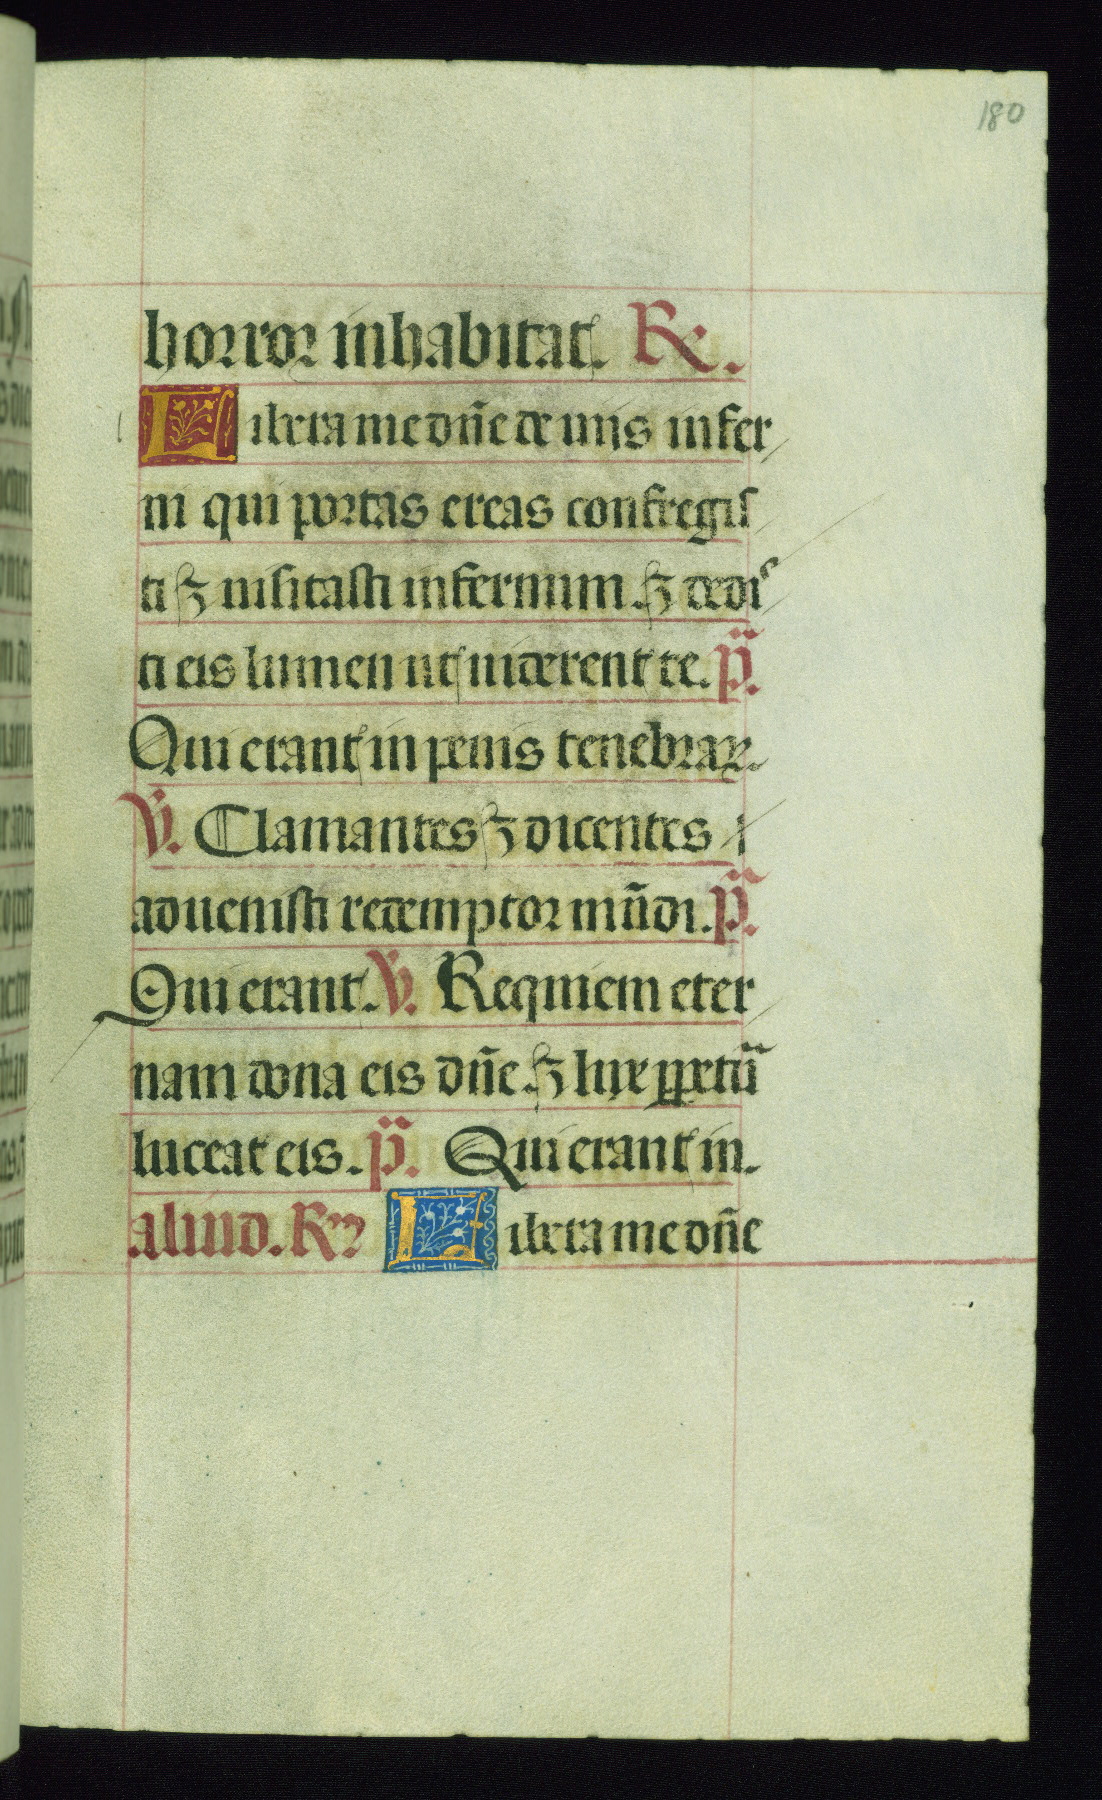 180
horror inhabitat. R̃.
Libera me dñe de uiis infer
ni qui portas ereas confregis
ti ⁊ uisitasti infernum ⁊ dedis
ti eis lumen ut uiderent te. p̃.
Qui erant in penis tenebraꝝ.
V̇. Clamantes ⁊ dicentes
aduenisti redemptor mũdi. p̃.
Qui erant. V̇. Requiem eter
nam dona eis dñe ⁊ lux ꝑpetũ
luceat eis. p̃. Qui erant in.
aliud. R̃ Libera me dñe